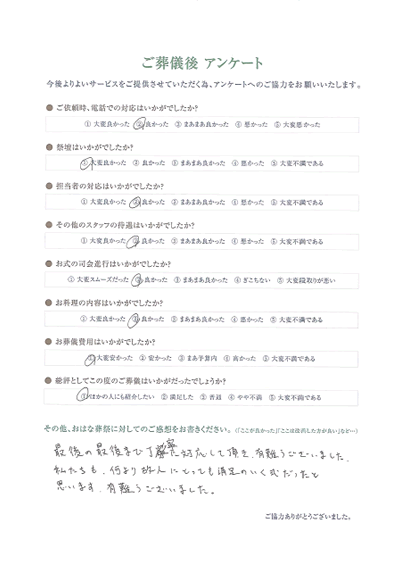 ご葬儀後 アンケート
今後よりよいサービスをご提供させていただく為、アンケートへのご協力をお願いいたします。
● ご依頼時、電話での対応はいかがでしたか?
① 大変良かった ② 良かった ③ まあまあ良かった ④ 悪かった ⑤ 大変悪かった
● 祭壇はいかがでしたか?
① 大変良かった ② 良かった ③ まあまあ良かった ④ 悪かった ⑤ 大変不満である
● 担当者の対応はいかがでしたか?
① 大変良かった ② 良かった ③ まあまあ良かった ④ 悪かった ⑤ 大変不満である
● その他のスタッフの待遇はいかがでしたか?
① 大変良かった ② 良かった ③ まあまあ良かった ④ 悪かった ⑤ 大変不満である
● お式の司会進行はいかがでしたか?
① 大変スムーズだった ② 良かった ③ まあまあ良かった ④ ぎこちない ⑤ 大変段取りが悪い
● お料理の内容はいかがでしたか?
① 大変良かった ② 良かった ③ まあまあ良かった ④ 悪かった ⑤ 大変不満である
● お葬儀費用はいかがでしたか?
① 大変安かった ② 安かった ③ まあ予算内 ④ 高かった ⑤ 大変不満である
● 総評としてこの度のご葬儀はいかがだったでしょうか?
① ほかの人にも紹介したい ② 満足した ③ 普通 ④ やや不満 ⑤ 大変不満である
その他、おはな葬祭に対してのご感想をお書きください。(「ここが良かった」「ここは改善した方が良い」など…)
最後の最後まで丁寧に対応して頂き、有難うございました。
私たちも、何より故人にとっても満足のいく式だったと
思います。有難うございました。
ご協力ありがとうございました。